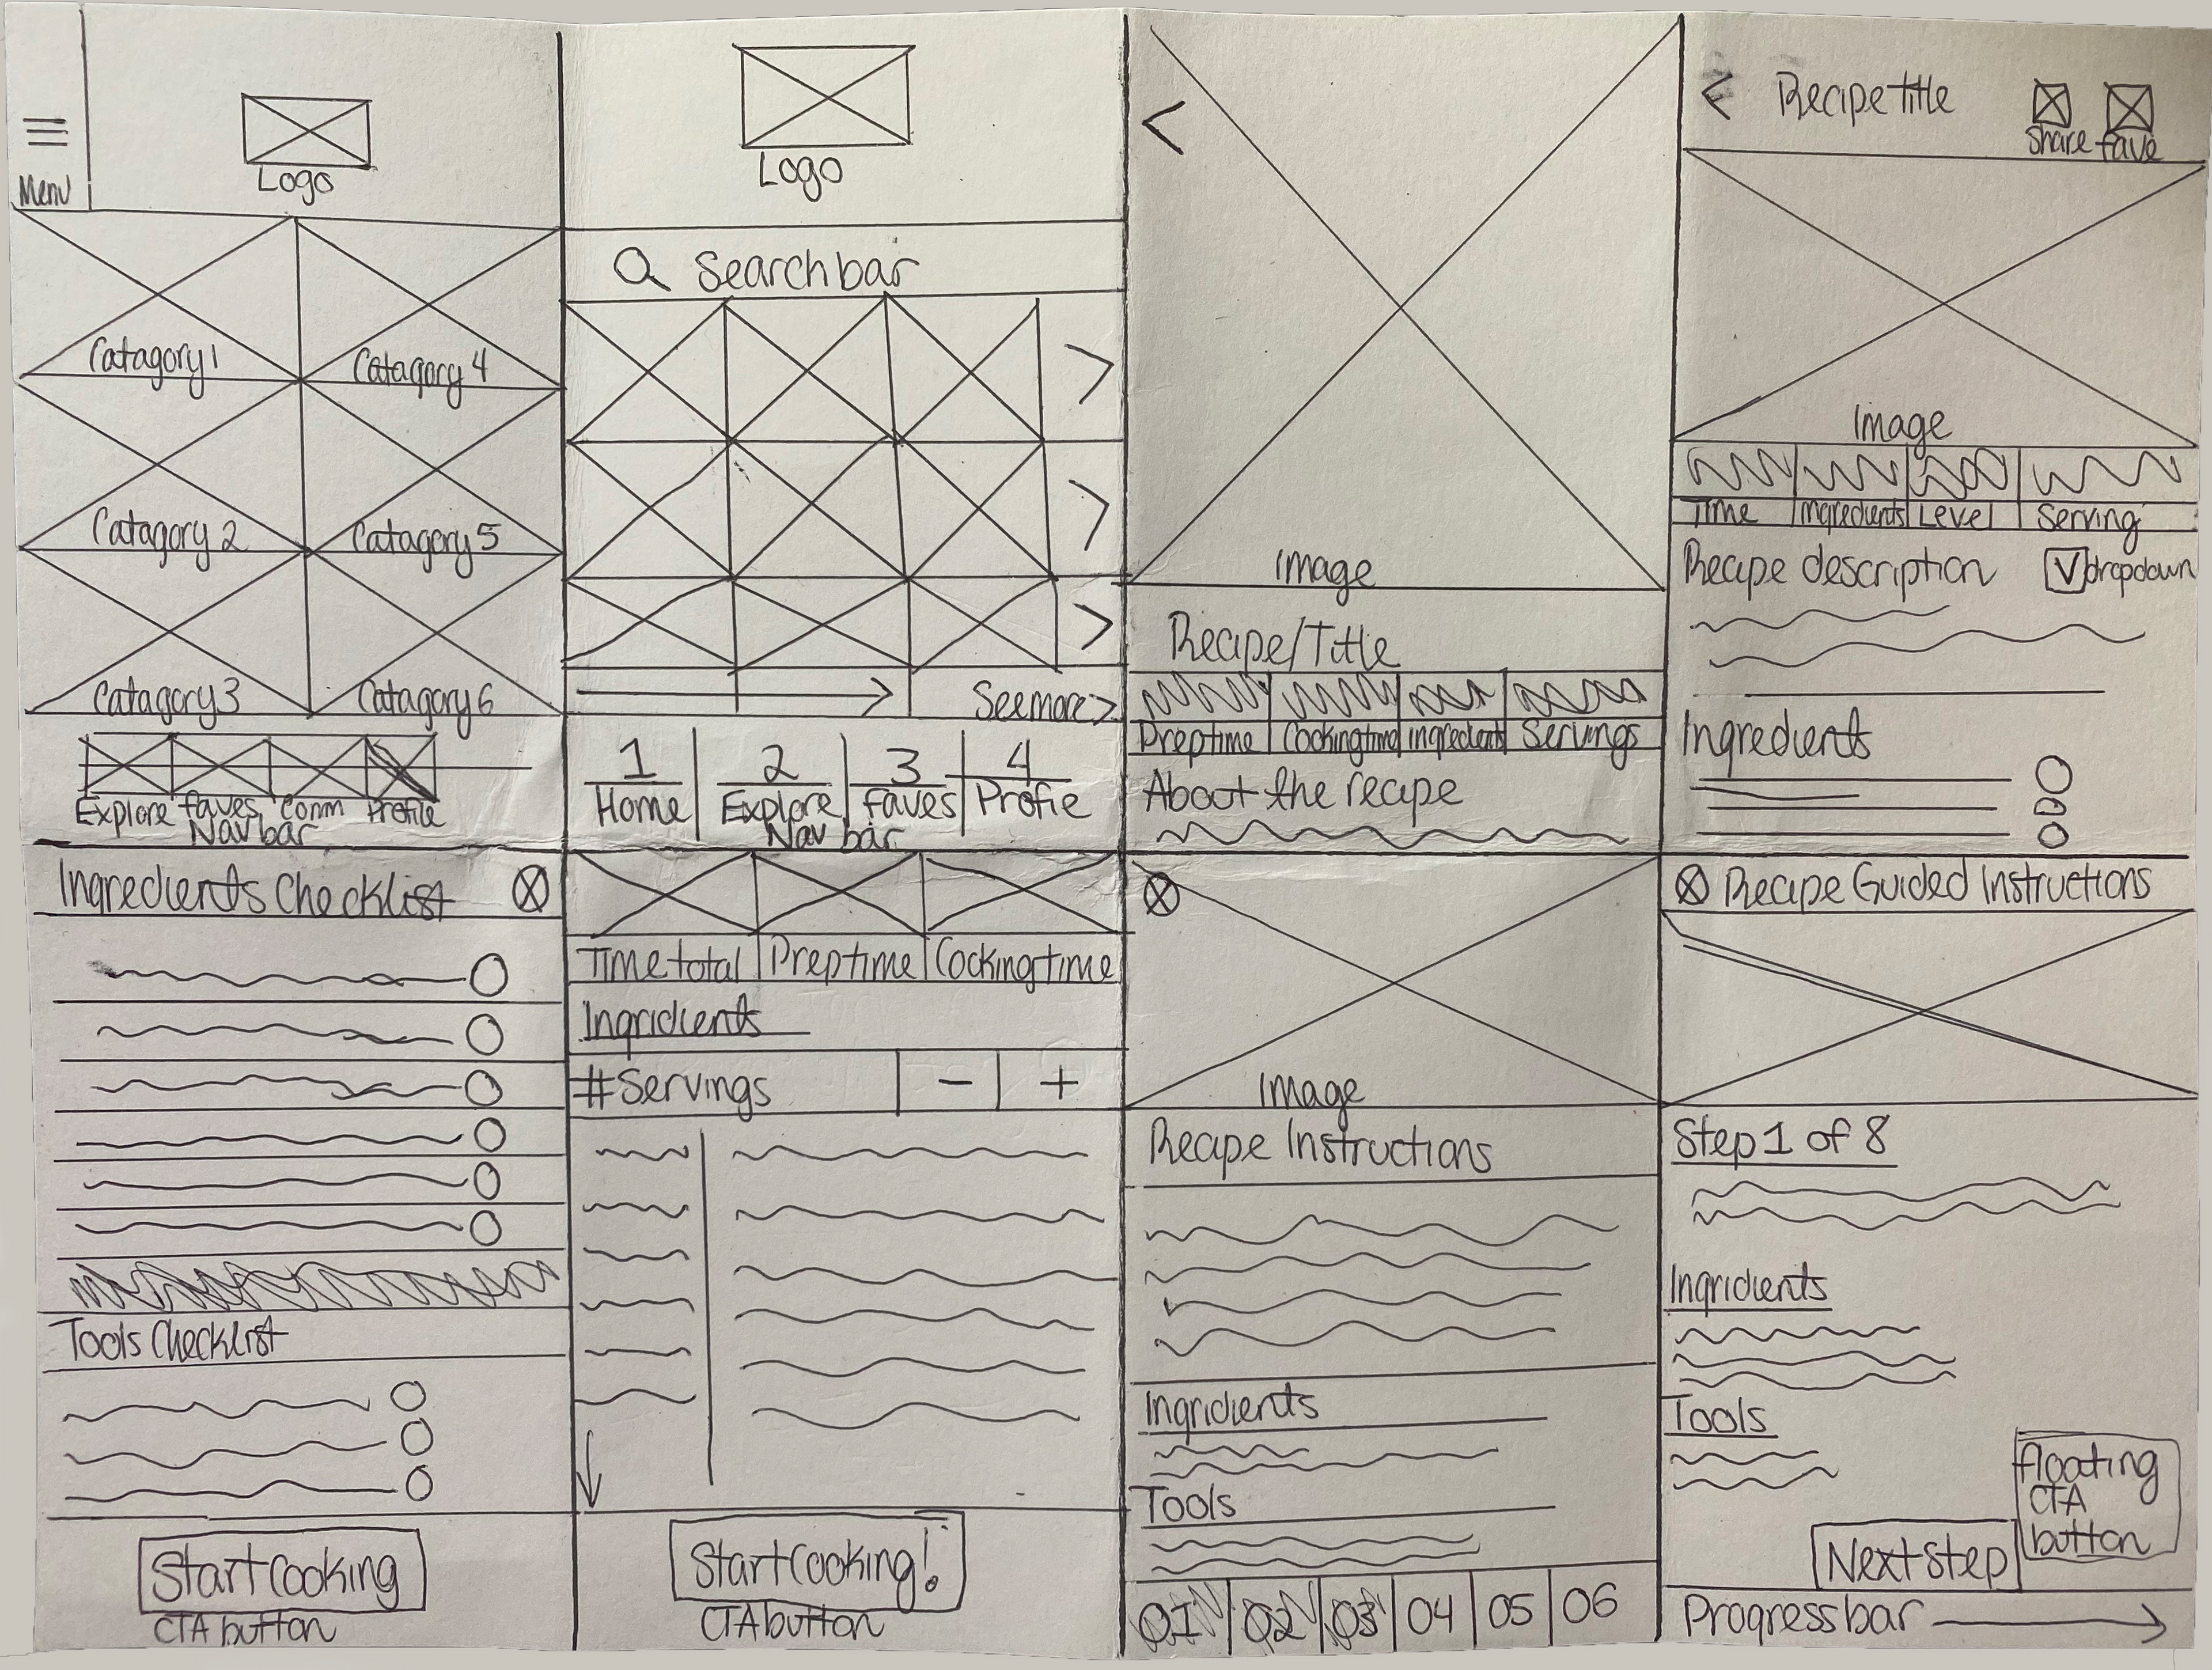 Menu
Logo
Catagory 1
Catagory 4
Catagory 2
Catagory 5
Catagory 3
Catagory 6
Explore faves Comm Profile
Nav bar
Logo
Search bar
See more >
1 2 3 4
Home Explore faves Profie
Nav bar
<
Image
Recipe/Title
Prep time Cocking time ingredients Servings
About the recipe
< Recipe title
Share fave
Image
Time Ingredients Level Serving
Recipe description V dropdown
Ingredients
Ingredients Checklist X
Tools Checklist
Start Cooking
CTA button
Time total Prep time Cocking time
Ingridients
# Servings - +
Start Cooking!
CTA button
X
Image
Recipe Instructions
Ingridients
Tools
01 02 03 04 05 06
X Recipe Guided Instructions
Step 1 of 8
Ingridients
Tools
floating
CTA
button
Next Step
Progress bar